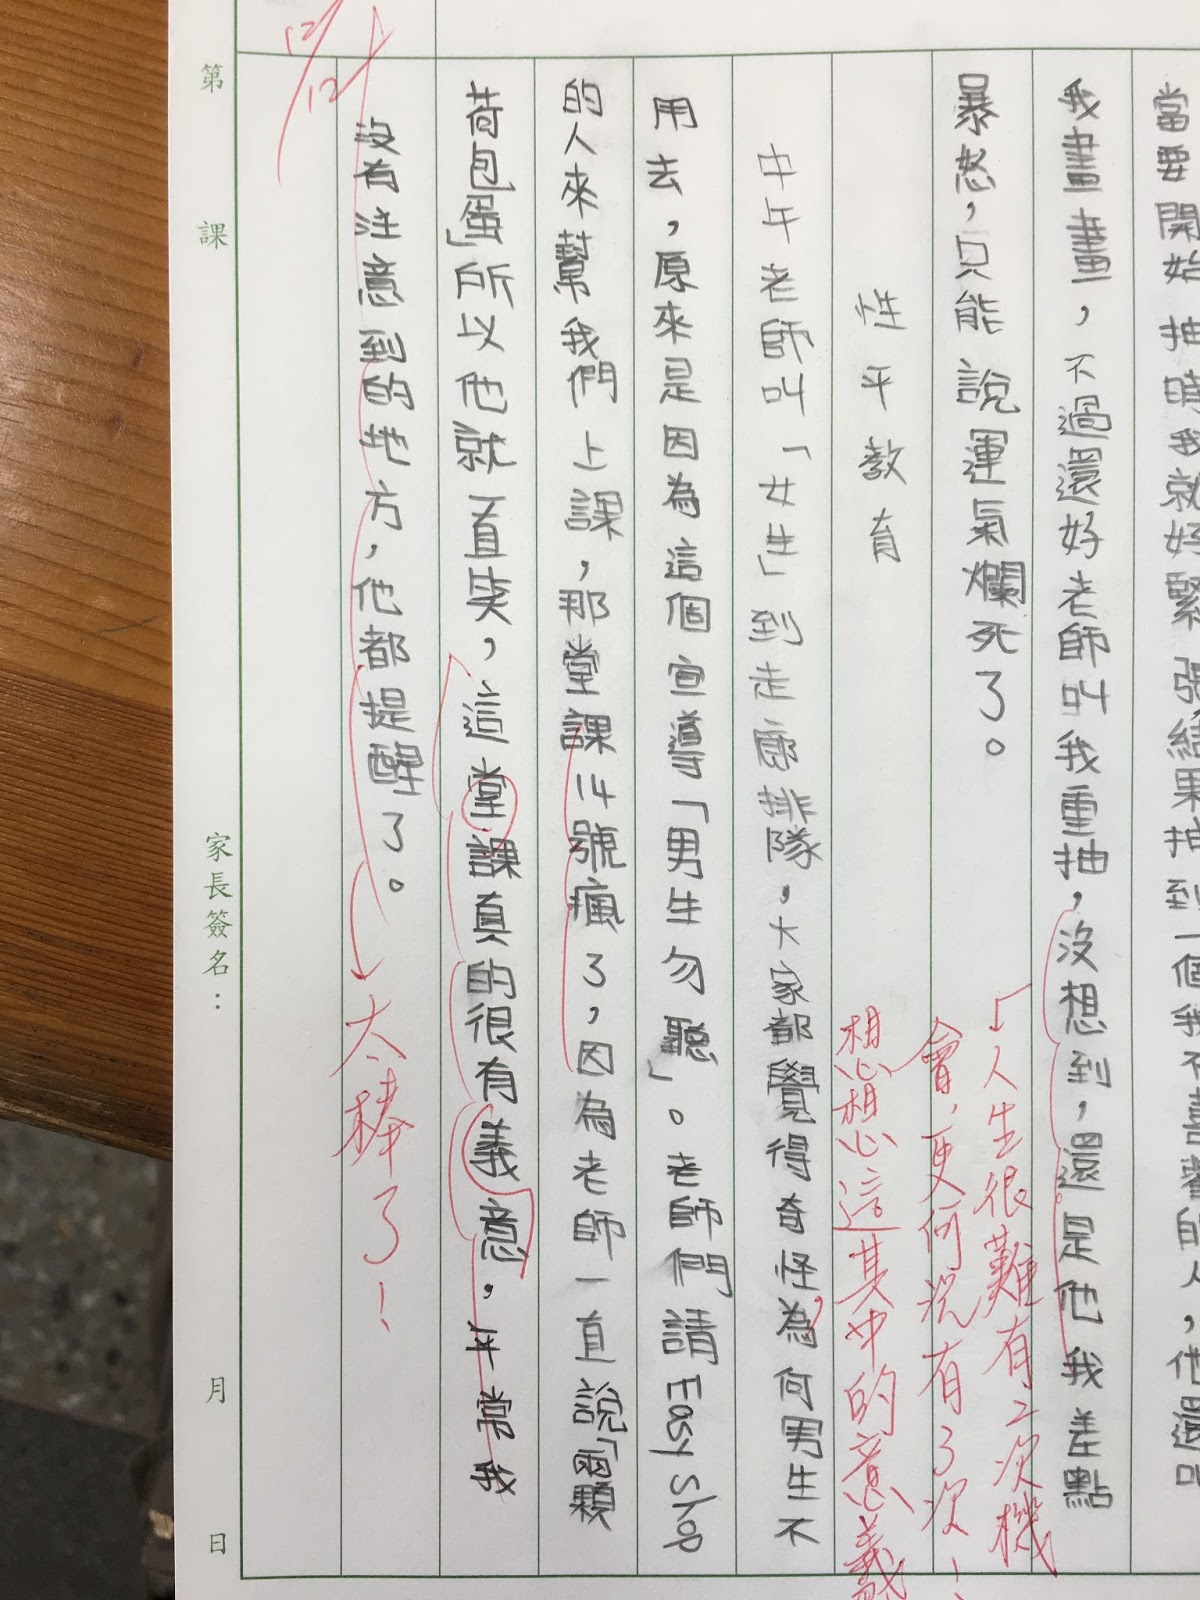 當要開始抽時我就好緊張結果抽到一個我不喜歡的人，他還叫
我畫畫，不過還好老師叫我重抽，沒想到，還是他我差點
暴怒，只能說運氣爛死了。
「人生很難有2次機
會，更何況有了次！
性平教育
想想這其中的意義
中午老師叫「女生」到走廊排隊，大家都覺得奇怪，為何男生不
用去，原來是因為這個宣導「男生勿聽」。老師們請Easy shop
的人來幫我們上課，那堂課14號瘋了，因為老師一直說「兩顆
荷包蛋」所以他就一直笑，這堂課真的很有義意，平常我
沒有注意到的地方，他都提醒了。
太棒了！
12/12
第 課 家長簽名： 月 日